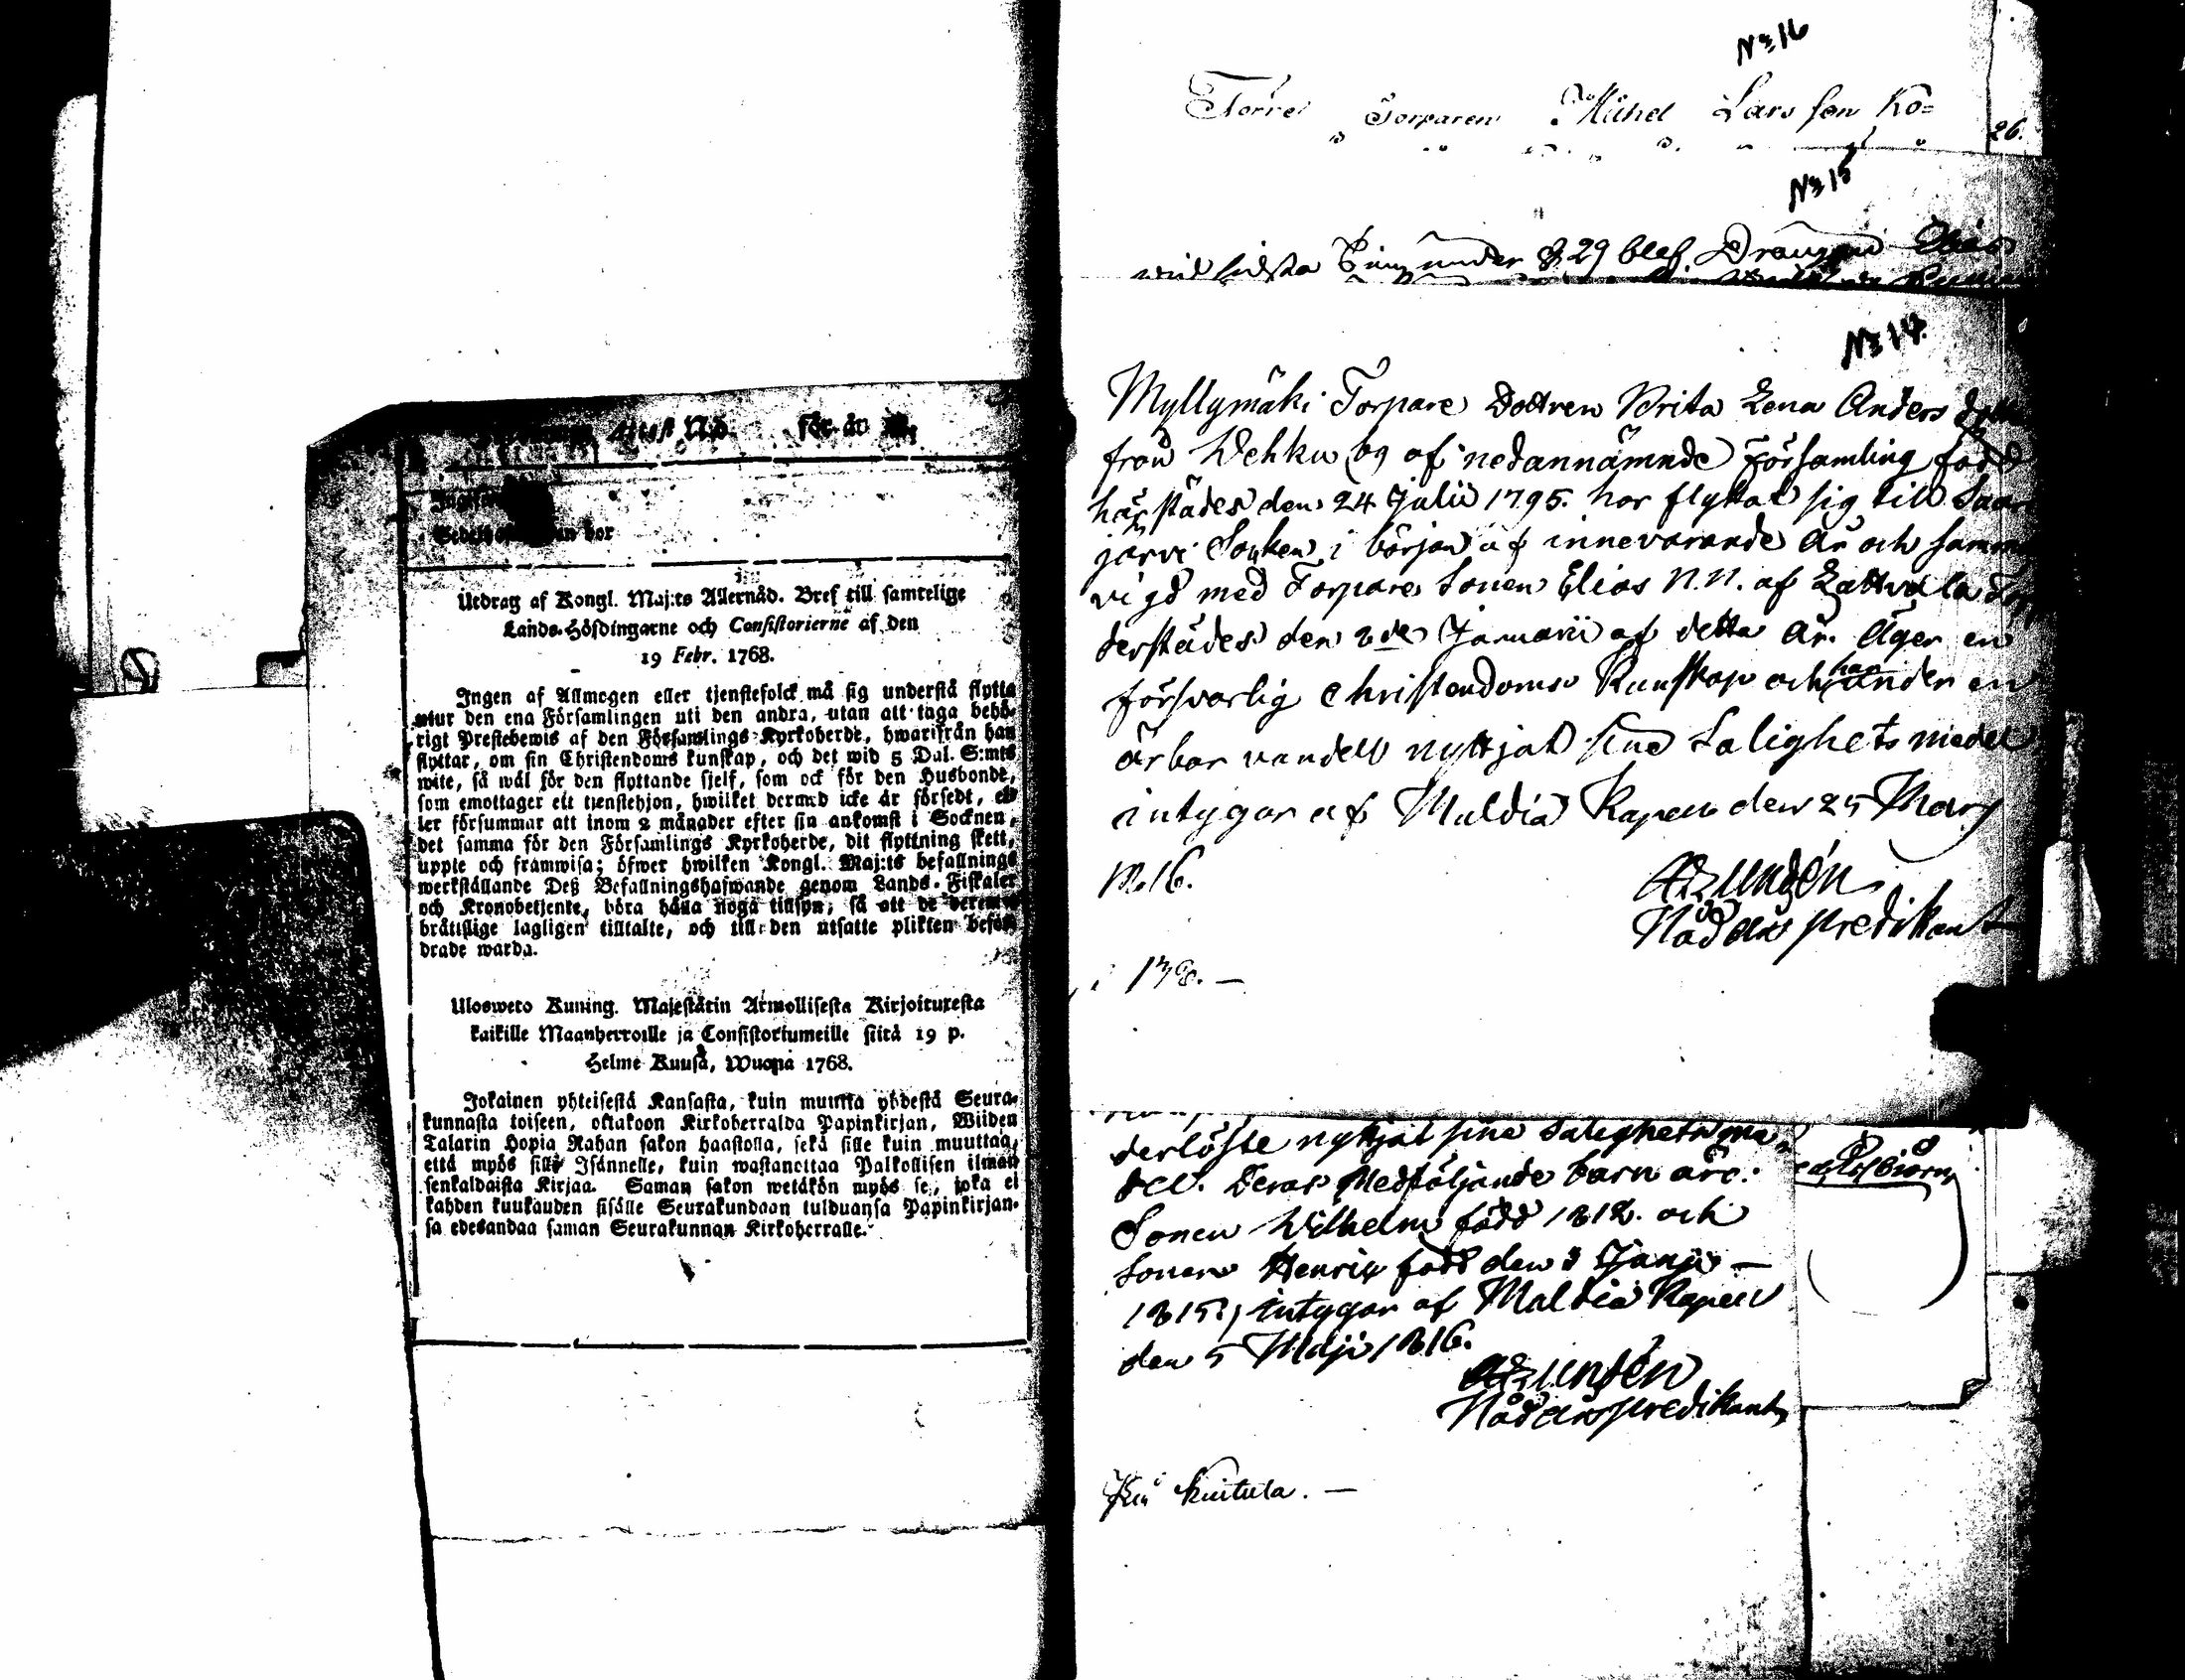 Attest N:o. för år
bor
Utdrag af Kongl. Maj:ts Allernåd. Bref till samtelige
Lands-Höfdingarne och Consistorierne af den
19 Febr. 1768.
Ingen af Allmogen eller tjenstefolck må sig understå flytta
utur den ena Församlingen uti den andra, utan att taga behö-
rigt Prestebewis af den Församlings Kyrkoherde, hwarifrån han
flyttar, om sin Christendoms kunskap, och det wid 5 Dal. S:mts
wite, så wäl för den flyttande sjelf, som ock för den Husbonde,
som emottager ett tjenstehjon, hwilket dermed icke är försedt, el-
ler försummar att inom 2 månader efter sin ankomst i Socknen,
det samma för den Församlings Kyrkoherde, dit flyttning skett,
uppte och framwisa; öfwer hwilken Kongl. Maj:ts befallnings
werkställande Deß Befallningshafwande genom Lands-Fiskaler
och Kronobetjente, böra hålla noga tillsyn, så att de
bråttslige lagligen tilltalte, och till den utsatte plikten befor-
drade warda.
Ulosweto Kuning. Majestätin Armollisesta Kirjoituxesta
kaikille Maanherroille ja Consistoriumeille siitä 19 p.
Helme Kuusa, Wuona 1768.
Jokainen yhteisestä Kansasta, kuin muutta yhdestä Seura-
kunnasta toiseen, ottakoon Kirkoherralda Papinkirjan, Wiiden
Talarin Hopia Rahan sakon haastolla, sekä sille kuin muuttaa,
että myös sille Isännelle, kuin wastanottaa Palkollisen ilman
senkaldaista Kirjaa. Saman sakon wetäkön myös se, joka ei
kahden kuukauden sisälle Seurakundaan tulduansa Papinkirjan-
sa edesandaa saman Seurakunnan Kirkoherralle.
No 16
Torparen Michel Lars son Ko=
26.
No 15
sidsta Ting under § 29 blef Drängen Elias
No 14.
Myllymäki Torpare Dottren Brita Lena Anders
från Wehku og af nedannämnde Församling född
härstädes den 24 Julii 1795. har flyttat sig till Saar
järvi Socken i början af innevarande År och
vigd med Torpare Sonen Elias N.N. af Lattvala
derstädes den 2de Januarii af detta År. Äger en
försvarlig Christendoms Kunskap och har under en
ärbar vandel nyttjat sine Salighets medel
intygar af Muldia Kapell den 25 Mars
1816.
A Lundén
Nådårs predikant
derlöste nyttjat sine Salighets me
del. Deras Medföljande barn äro:
Sonen Wilhelm född 1812. och
Sonen Henrik född den 3 Junji —
1815., intygar af Muldia Kapell
den 5 Maji 1816.
A Lundén
Nådårspredikant
Kuitula. —